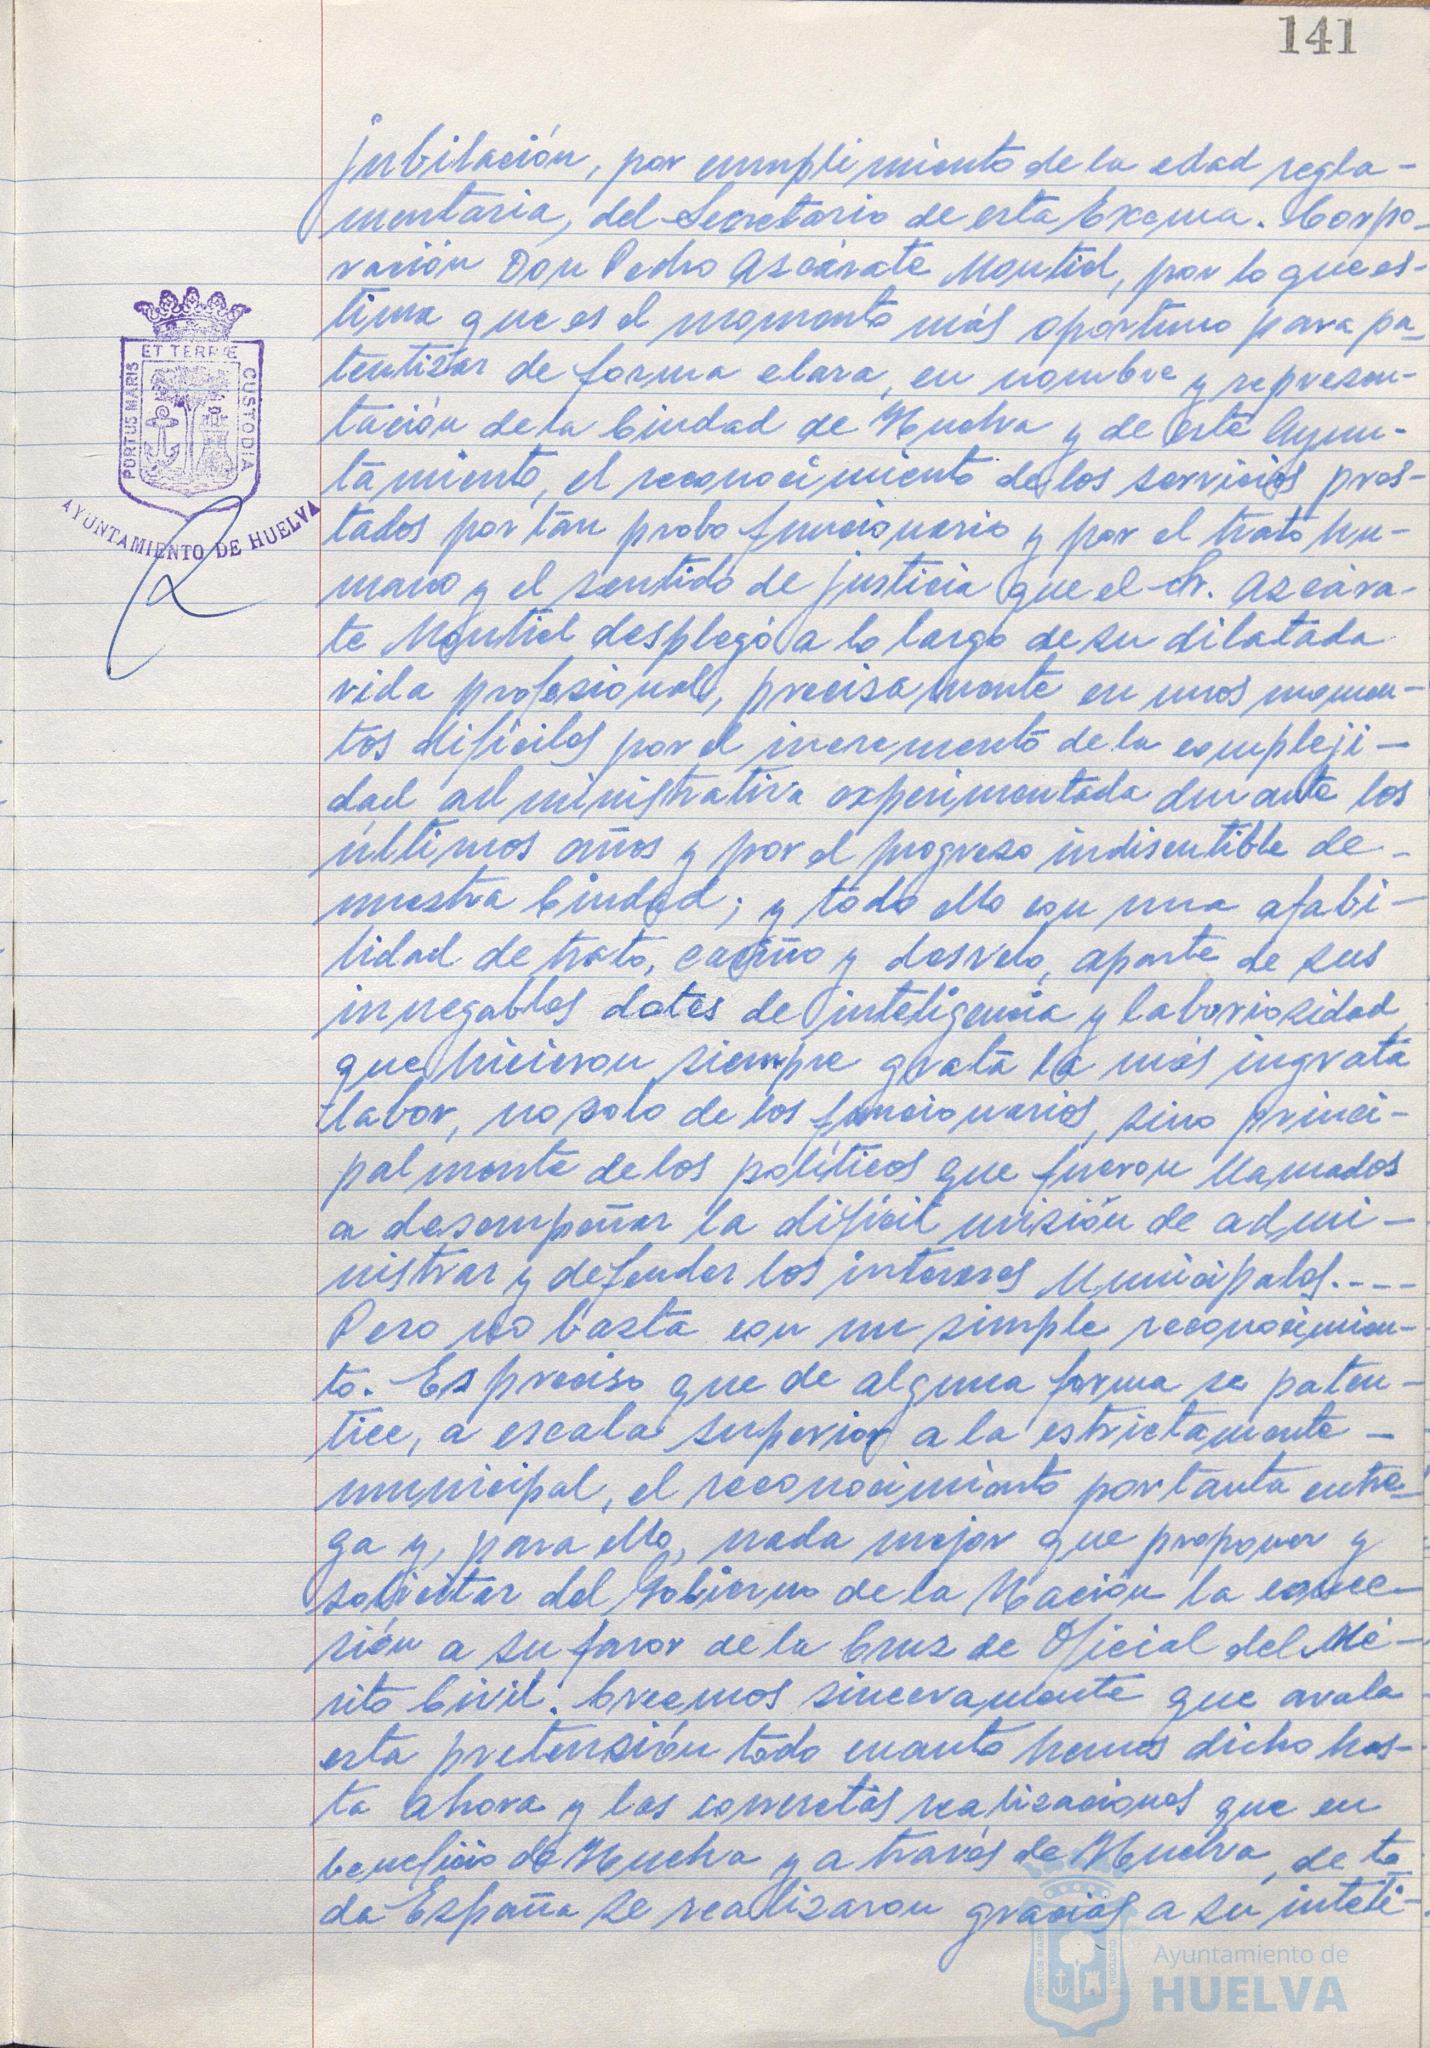 141
jubilación, por cumplimiento de la edad regla-
mentaria, del Secretario de esta Excma. Corpo-
ración Don Pedro Azcárate Montiel, por lo que es-
tima que es el momento más oportuno para pa-
tentizar de forma clara, en nombre y represen-
tación de la Ciudad de Huelva y de este Ayun-
tamiento, el reconocimiento de los servicios pres-
tados por tan probo funcionario y por el trato hu-
mano y el sentido de justicia que el Sr. Azcára-
te Montiel desplegó a lo largo de su dilatada
vida profesional, precisamente en unos momen-
tos difíciles por el incremento de la compleji-
dad administrativa experimentada durante los
últimos años y por el progreso indiscutible de
nuestra Ciudad; y todo ello con una afabi-
lidad de trato, cariño y desvelo, aparte de sus
innegables dotes de inteligencia y laboriosidad,
que hicieron siempre grata la más ingrata
labor, no solo de los funcionarios, sino princi-
palmente de los políticos que fueron llamados
a desempeñar la difícil misión de admi-
nistrar y defender los intereses Municipales.---
Pero no basta con un simple reconocimien-
to. Es preciso que de alguna forma se paten-
tice, a escala superior a la estrictamente -
municipal, el reconocimiento por tanta entre-
ga y, para ello, nada mejor que proponer y
solicitar del Gobierno de la Nación la conce-
sión a su favor de la Cruz de Oficial del Mé-
rito Civil. Creemos sinceramente que avala
esta pretensión todo cuanto hemos dicho has-
ta ahora y las concretas realizaciones que en
beneficio de Huelva y a través de Huelva, de to
da España se realizaron gracias a su inteli-
PORTUS MARIS ET TERRÆ CUSTODIA
AYUNTAMIENTO DE HUELVA
PORTUS MARIS CUSTODIA
Ayuntamiento de
HUELVA